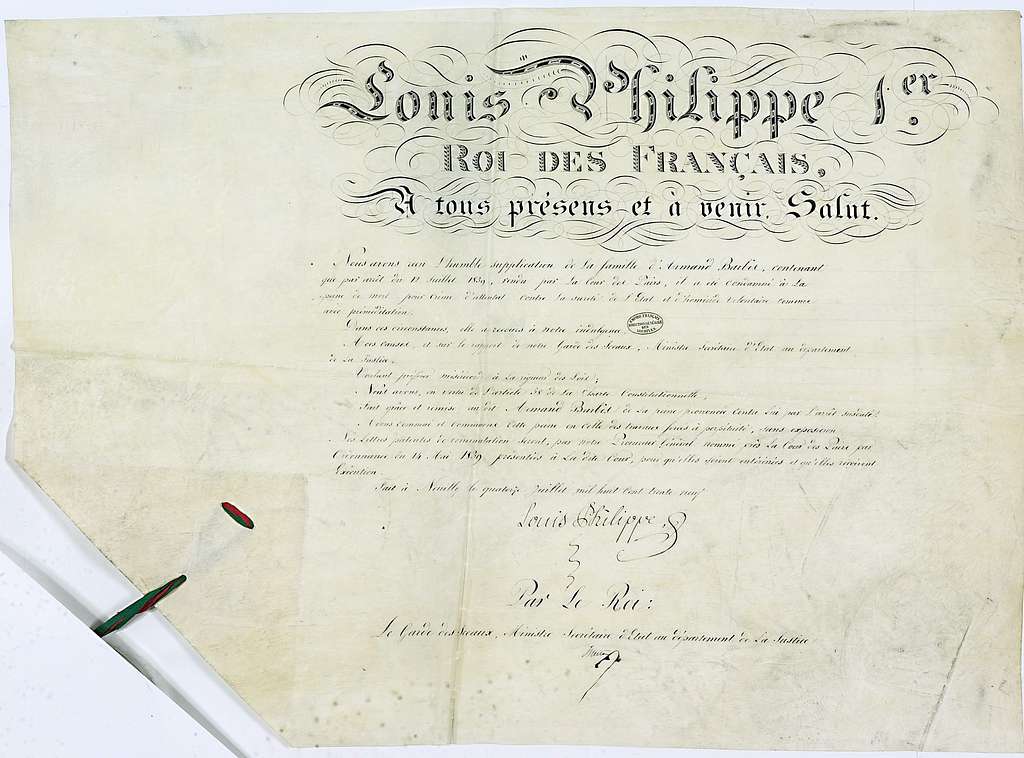 Louis Philippe 1.er
Roi des Français,
A tous présens et à venir, Salut.
Nous avons reçu l'humble supplication de la famille d'Armand Barbès, contenant
que par arrêt du 12 Juillet 1839, rendu par la Cour des Pairs, il a été condamné à la
peine de mort, pour crime d'attentat contre la sureté de l'Etat et d'homicide volontaire commis
avec préméditation.
Dans ces circonstances, elle a recours à notre indulgence.
A ces causes, et sur le rapport de notre Garde des Sceaux, Ministre Secrétaire d'Etat au département
de la Justice;
Voulant préférer miséricorde à la rigueur des Lois;
Nous avons, en vertu de l'article 58 de la Charte Constitutionnelle,
Fait grâce et remise audit Armand Barbès de la peine prononcée contre lui par l'arrêt susdaté;
Avons commué et commuons cette peine en celle des travaux forcés à perpétuité, sans exposition.
Nos lettres patentes de commutation seront, par notre Procureur Général nommé près la Cour des Pairs par
Ordonnance du 14 Mai 1839, présentées à la dite Cour, pour qu'elles soient entérinées et qu'elles reçoivent
Exécution.
Fait à Neuilly le quatorze Juillet mil huit cent trente neuf
Louis Philippe
Par le Roi:
Le Garde des Sceaux, Ministre Secrétaire d'Etat au département de la Justice